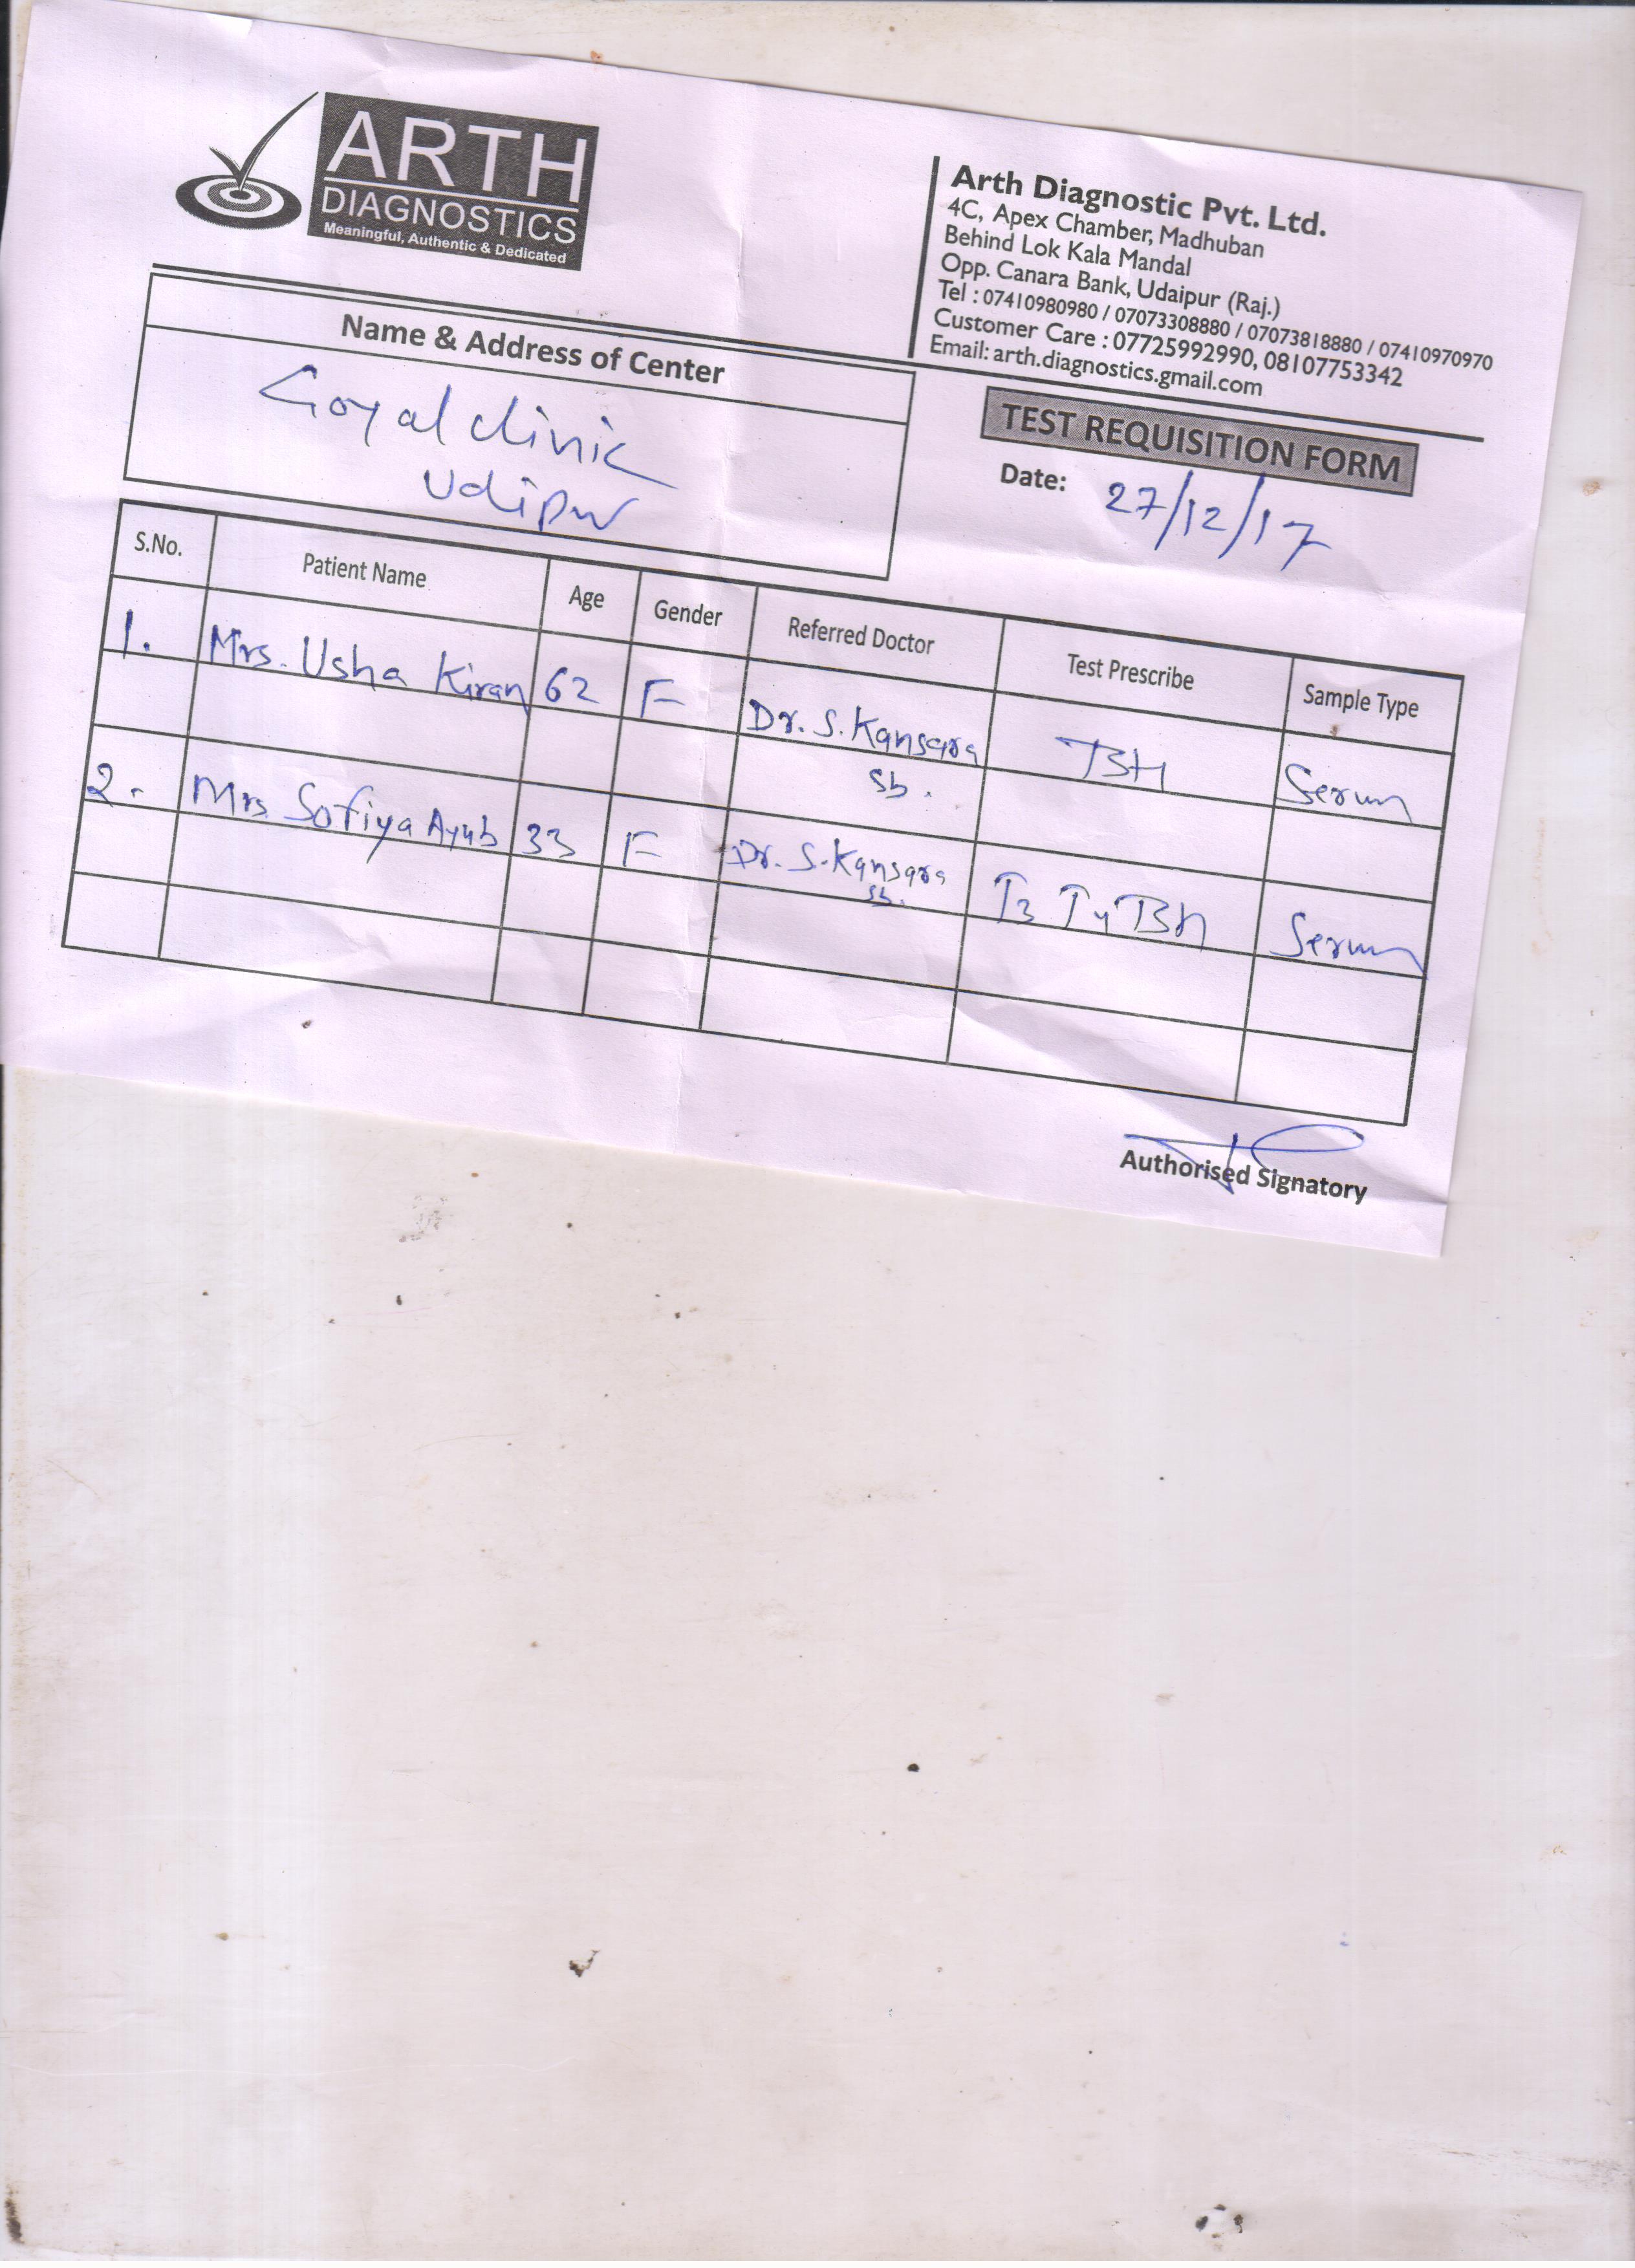 ARTH
DIAGNOSTICS
Meaningful, Authentic & Dedicated
Arth Diagnostic Pvt. Ltd.
4C, Apex Chamber, Madhuban
Behind Lok Kala Mandal
Opp. Canara Bank, Udaipur (Raj.)
Tel : 07410980980 / 07073308880 / 07073818880 / 07410970970
Customer Care : 07725992990, 08107753342
Email: arth.diagnostics.gmail.com
Name & Address of Center
Goyal clinic
Udipur
TEST REQUISITION FORM
Date: 27/12/17
S.No. Patient Name Age Gender Referred Doctor Test Prescribe Sample Type
1. Mrs. Usha Kiran 62 F Dr. S. Kansara TSH Serum
sb.
2. Mrs. Sofiya Ayub 33 F Dr. S. Kansara T3 T4 TSH Serum
sb.
Authorised Signatory